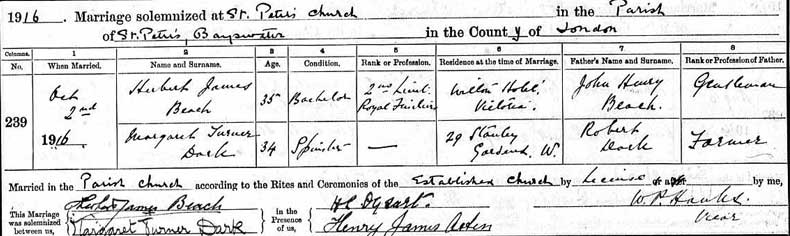 1916. Marriage solemnized at St. Peter's Church in the Parish
of St. Peter's, Bayswater in the County of London
Columns. 1 2 3 4 5 6 7 8
No. When Married. Name and Surname. Age. Condition. Rank or Profession. Residence at the time of Marriage. Father's Name and Surname. Rank or Profession of Father.
239 Oct 2nd 1916 Herbert James Beach 35 Bachelor 2nd Lieut. Royal Fusiliers Wilton Hotel Victoria. John Henry Beach. Gentleman
Margaret Turner Dark 34 Spinster — 29 Stanley Gardens, W. Robert Dark Farmer
Married in the Parish Church according to the Rites and Ceremonies of the Established Church by License or after by me,
This Marriage was solemnized between us, Herbert James Beach in the Presence of us, Henry James
Margaret Turner Dark Vicar